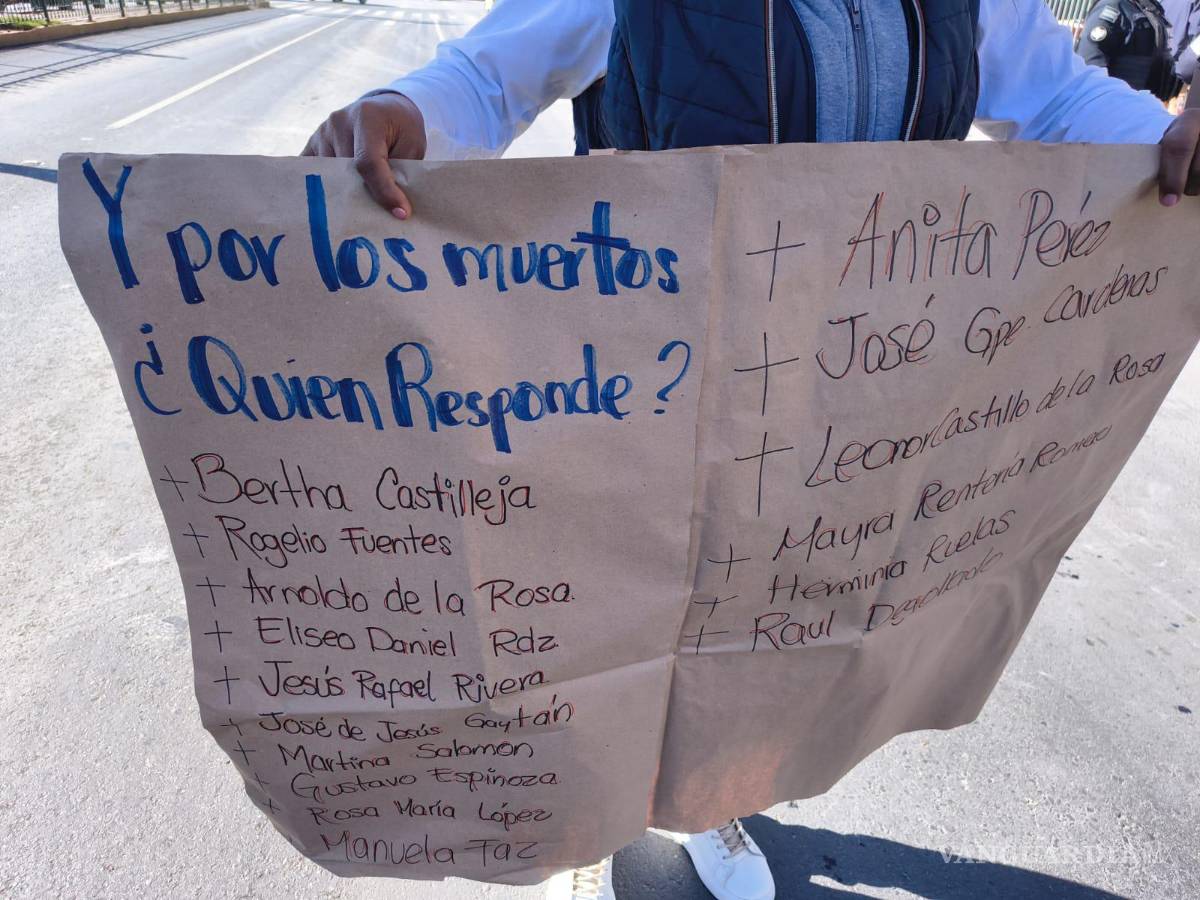 Y por los muertos
¿Quien Responde?
+ Bertha Castilleja
+ Rogelio Fuentes
+ Arnoldo de la Rosa.
+ Eliseo Daniel Rdz.
+ Jesús Rafael Rivera
+ José de Jesús Gaytán
+ Martina Salomón
+ Gustavo Espinoza
+ Rosa María López
Manuela Taz
+ Anita Peréz
+ José Gpe. Cardenas
+ Leonor Castillo de la Rosa
+ Mayra Rentería Romero
+ Herminia Ruelas
+ Raul Degollado
VANGUARDIA